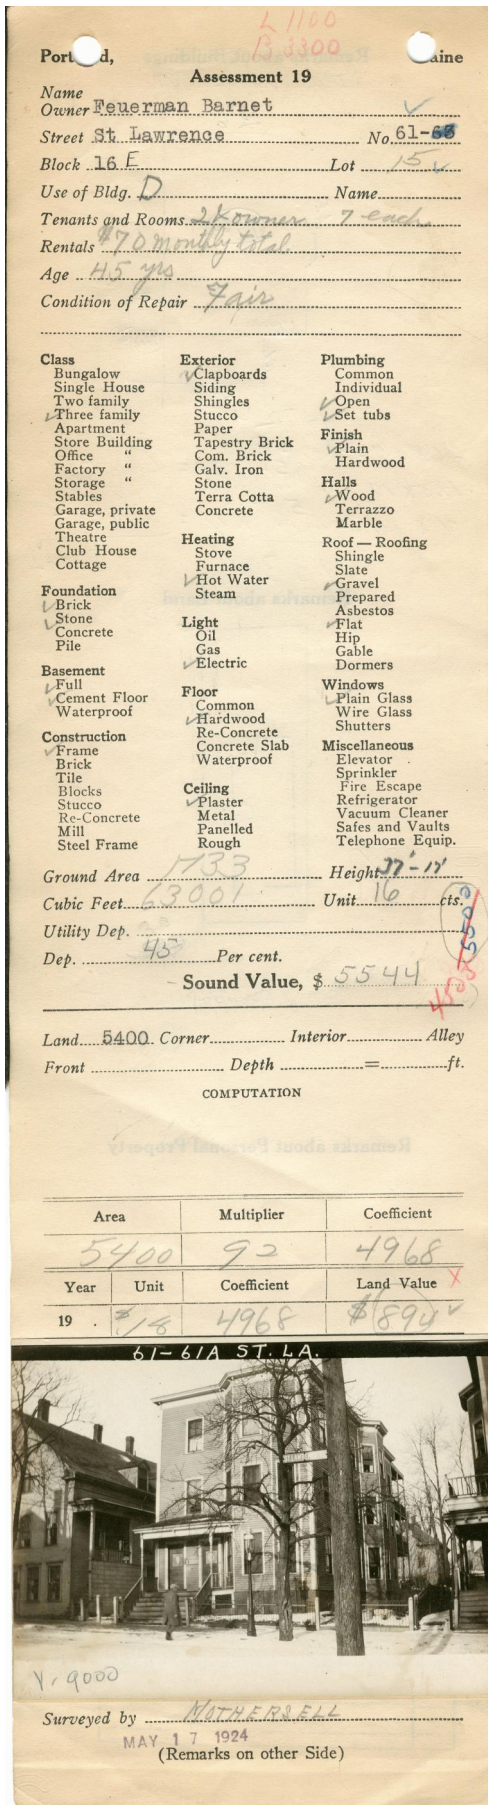 L 1100
B 3300
Port d, aine
Assessment 19
Name
Owner Feuerman Barnet
Street St Lawrence No. 61-63
Block 16 E Lot 15
Use of Bldg. D Name
Tenants and Rooms 2 & owner 7 each
Rentals $70 monthly total
Age 45 yrs
Condition of Repair Fair
Class
Bungalow
Single House
Two family
Three family
Apartment
Store Building
Office "
Factory "
Storage "
Stables
Garage, private
Garage, public
Theatre
Club House
Cottage
Foundation
Brick
Stone
Concrete
Pile
Basement
Full
Cement Floor
Waterproof
Construction
Frame
Brick
Tile
Blocks
Stucco
Re-Concrete
Mill
Steel Frame
Exterior
Clapboards
Siding
Shingles
Stucco
Paper
Tapestry Brick
Com. Brick
Galv. Iron
Stone
Terra Cotta
Concrete
Heating
Stove
Furnace
Hot Water
Steam
Light
Oil
Gas
Electric
Floor
Common
Hardwood
Re-Concrete
Concrete Slab
Waterproof
Ceiling
Plaster
Metal
Panelled
Rough
Plumbing
Common
Individual
Open
Set tubs
Finish
Plain
Hardwood
Halls
Wood
Terrazzo
Marble
Roof — Roofing
Shingle
Slate
Gravel
Prepared
Asbestos
Flat
Hip
Gable
Dormers
Windows
Plain Glass
Wire Glass
Shutters
Miscellaneous
Elevator
Sprinkler
Fire Escape
Refrigerator
Vacuum Cleaner
Safes and Vaults
Telephone Equip.
Ground Area 1733 Height 37'-17'
Cubic Feet 63001 Unit 16 cts.
Utility Dep.
Dep. 45 Per cent.
5500
4505
Sound Value, $ 5544
Land 5400 Corner Interior Alley
Front Depth = ft.
COMPUTATION
Area Multiplier Coefficient
5400 92 4968
Year Unit Coefficient Land Value X
19 . $/18 4968 $894
61-61A ST. LA.
V. 9000
Surveyed by MOTHERSELL
MAY 17 1924
(Remarks on other Side)